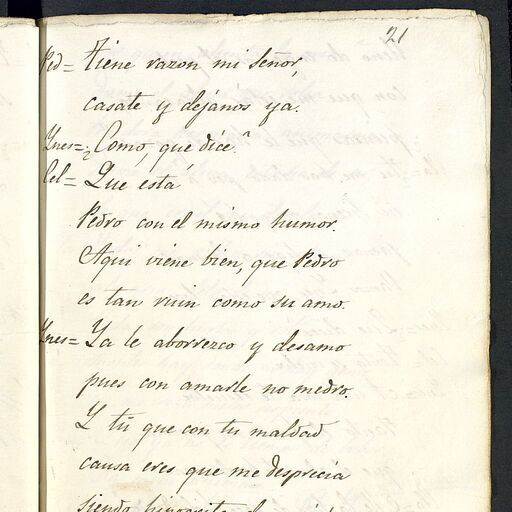 21
Ped= Tiene razon mi señor,
casate y déjanos ya.
Ynes= ¿Como, que dice?
Cel= Que está
Pedro con el mismo humor.
Aqui viene bien, que Pedro
es tan ruin como su amo.
Ynes= Ya le aborrezco y desamo
pues con amarle no medro.
Y tú que con tu maldad
causa eres que me desprecia
siendo